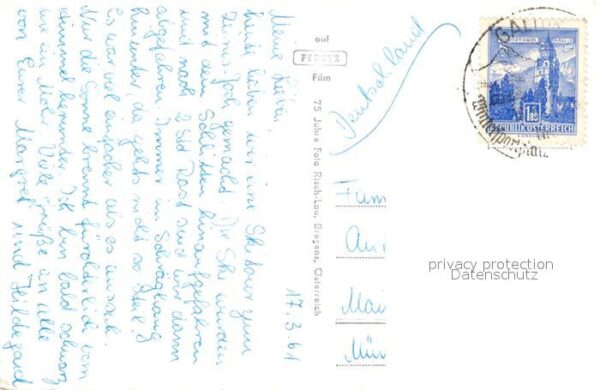 17.3.61
Meine Lieben!
heute haben wir eine Skitour zum
Joch gemacht. Die Ski wurden
mit dem Schlitten hinaufgefahren
und nach 2 Std Rast sind wir dann
abgefahren. Immer im Schräghang
hinunter, da gehts nicht so steil!
Es war viel einfacher als es aussah.
Nur die Sonne brennt fürchterlich vom
Himmel herunter. Ich bin bald schwarz
wie ein Mohr. Viele Grüße an alle
von Eurer Margret und Hildegard
auf
PERUTZ
Film
75 Jahre Foto Risch-Lau, Bregenz, Österreich
Deutschland
Fam
An
Mai
Mün
GALT
1.80
REPUBLIK ÖSTERREICH
Wintersportplatz
privacy protection
Datenschutz